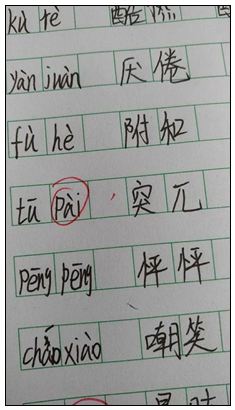 kù rè 酷热
yàn juàn 厌倦
fù hè 附和
tū pài 突兀
pēng pēng 怦怦
cháo xiào 嘲笑